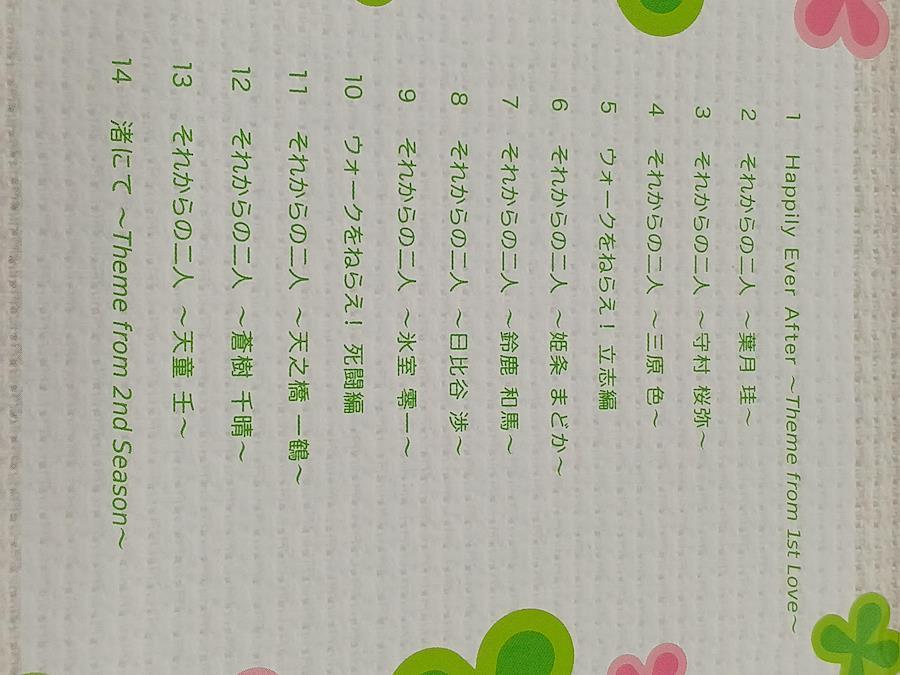 1 Happily Ever After ～Theme from 1st Love～
2 それからの二人 ～葉月 珪～
3 それからの二人 ～守村 桜弥～
4 それからの二人 ～三原 色～
5 ウォークをねらえ! 立志編
6 それからの二人 ～姫条 まどか～
7 それからの二人 ～鈴鹿 和馬～
8 それからの二人 ～日比谷 渉～
9 それからの二人 ～氷室 零一～
10 ウォークをねらえ! 死闘編
11 それからの二人 ～天之橋 一鶴～
12 それからの二人 ～蒼樹 千晴～
13 それからの二人 ～天童 壬～
14 渚にて ～Theme from 2nd Season～